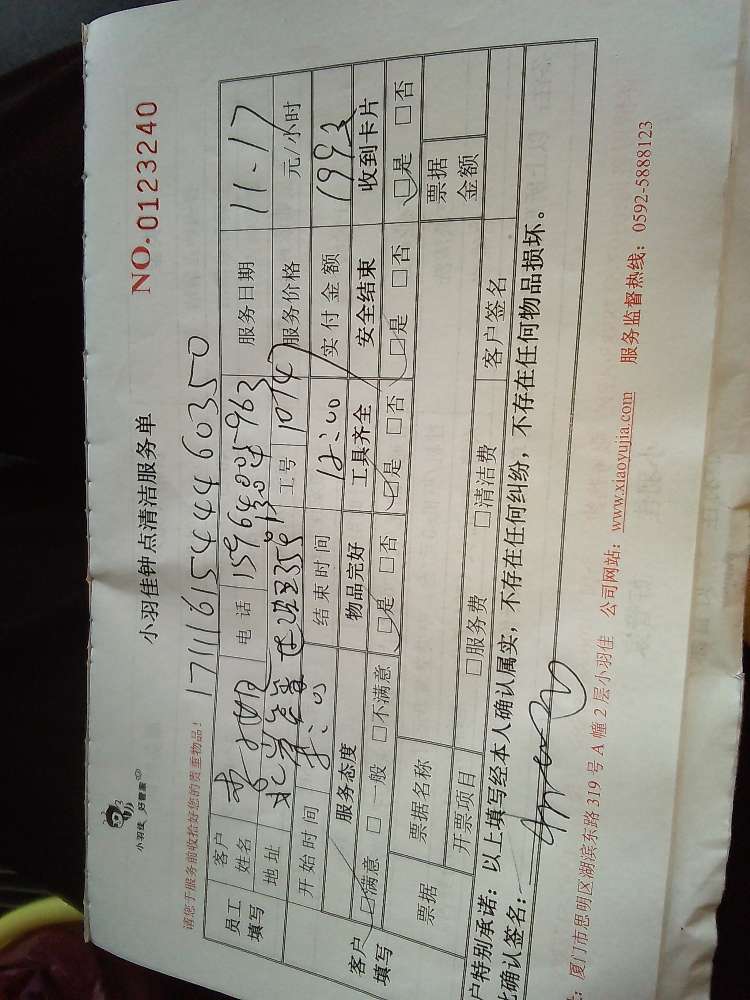 小羽佳 好管家
小羽佳钟点清洁服务单
NO.0123240
请您于服务前收拾好您的贵重物品!
1711161544460350
员工填写 客户姓名 电话 服务日期 11.17
地址 工号 1074 服务价格 元/小时
开始时间 结束时间 12:00 实付金额
客户填写 服务态度 物品完好 工具齐全 安全结束 收到卡片
□满意 □一般 □不满意 □是 □否 □是 □否 □是 □否 □是 □否
票据 票据名称 票据金额
开票项目 □服务费 □清洁费 客户签名
户特别承诺:以上填写经本人确认属实,不存在任何纠纷,不存在任何物品损坏。
确认签名:
厦门市思明区湖滨东路319号A幢2层小羽佳 公司网站:www.xiaoyujia.com 服务监督热线:0592-5888123